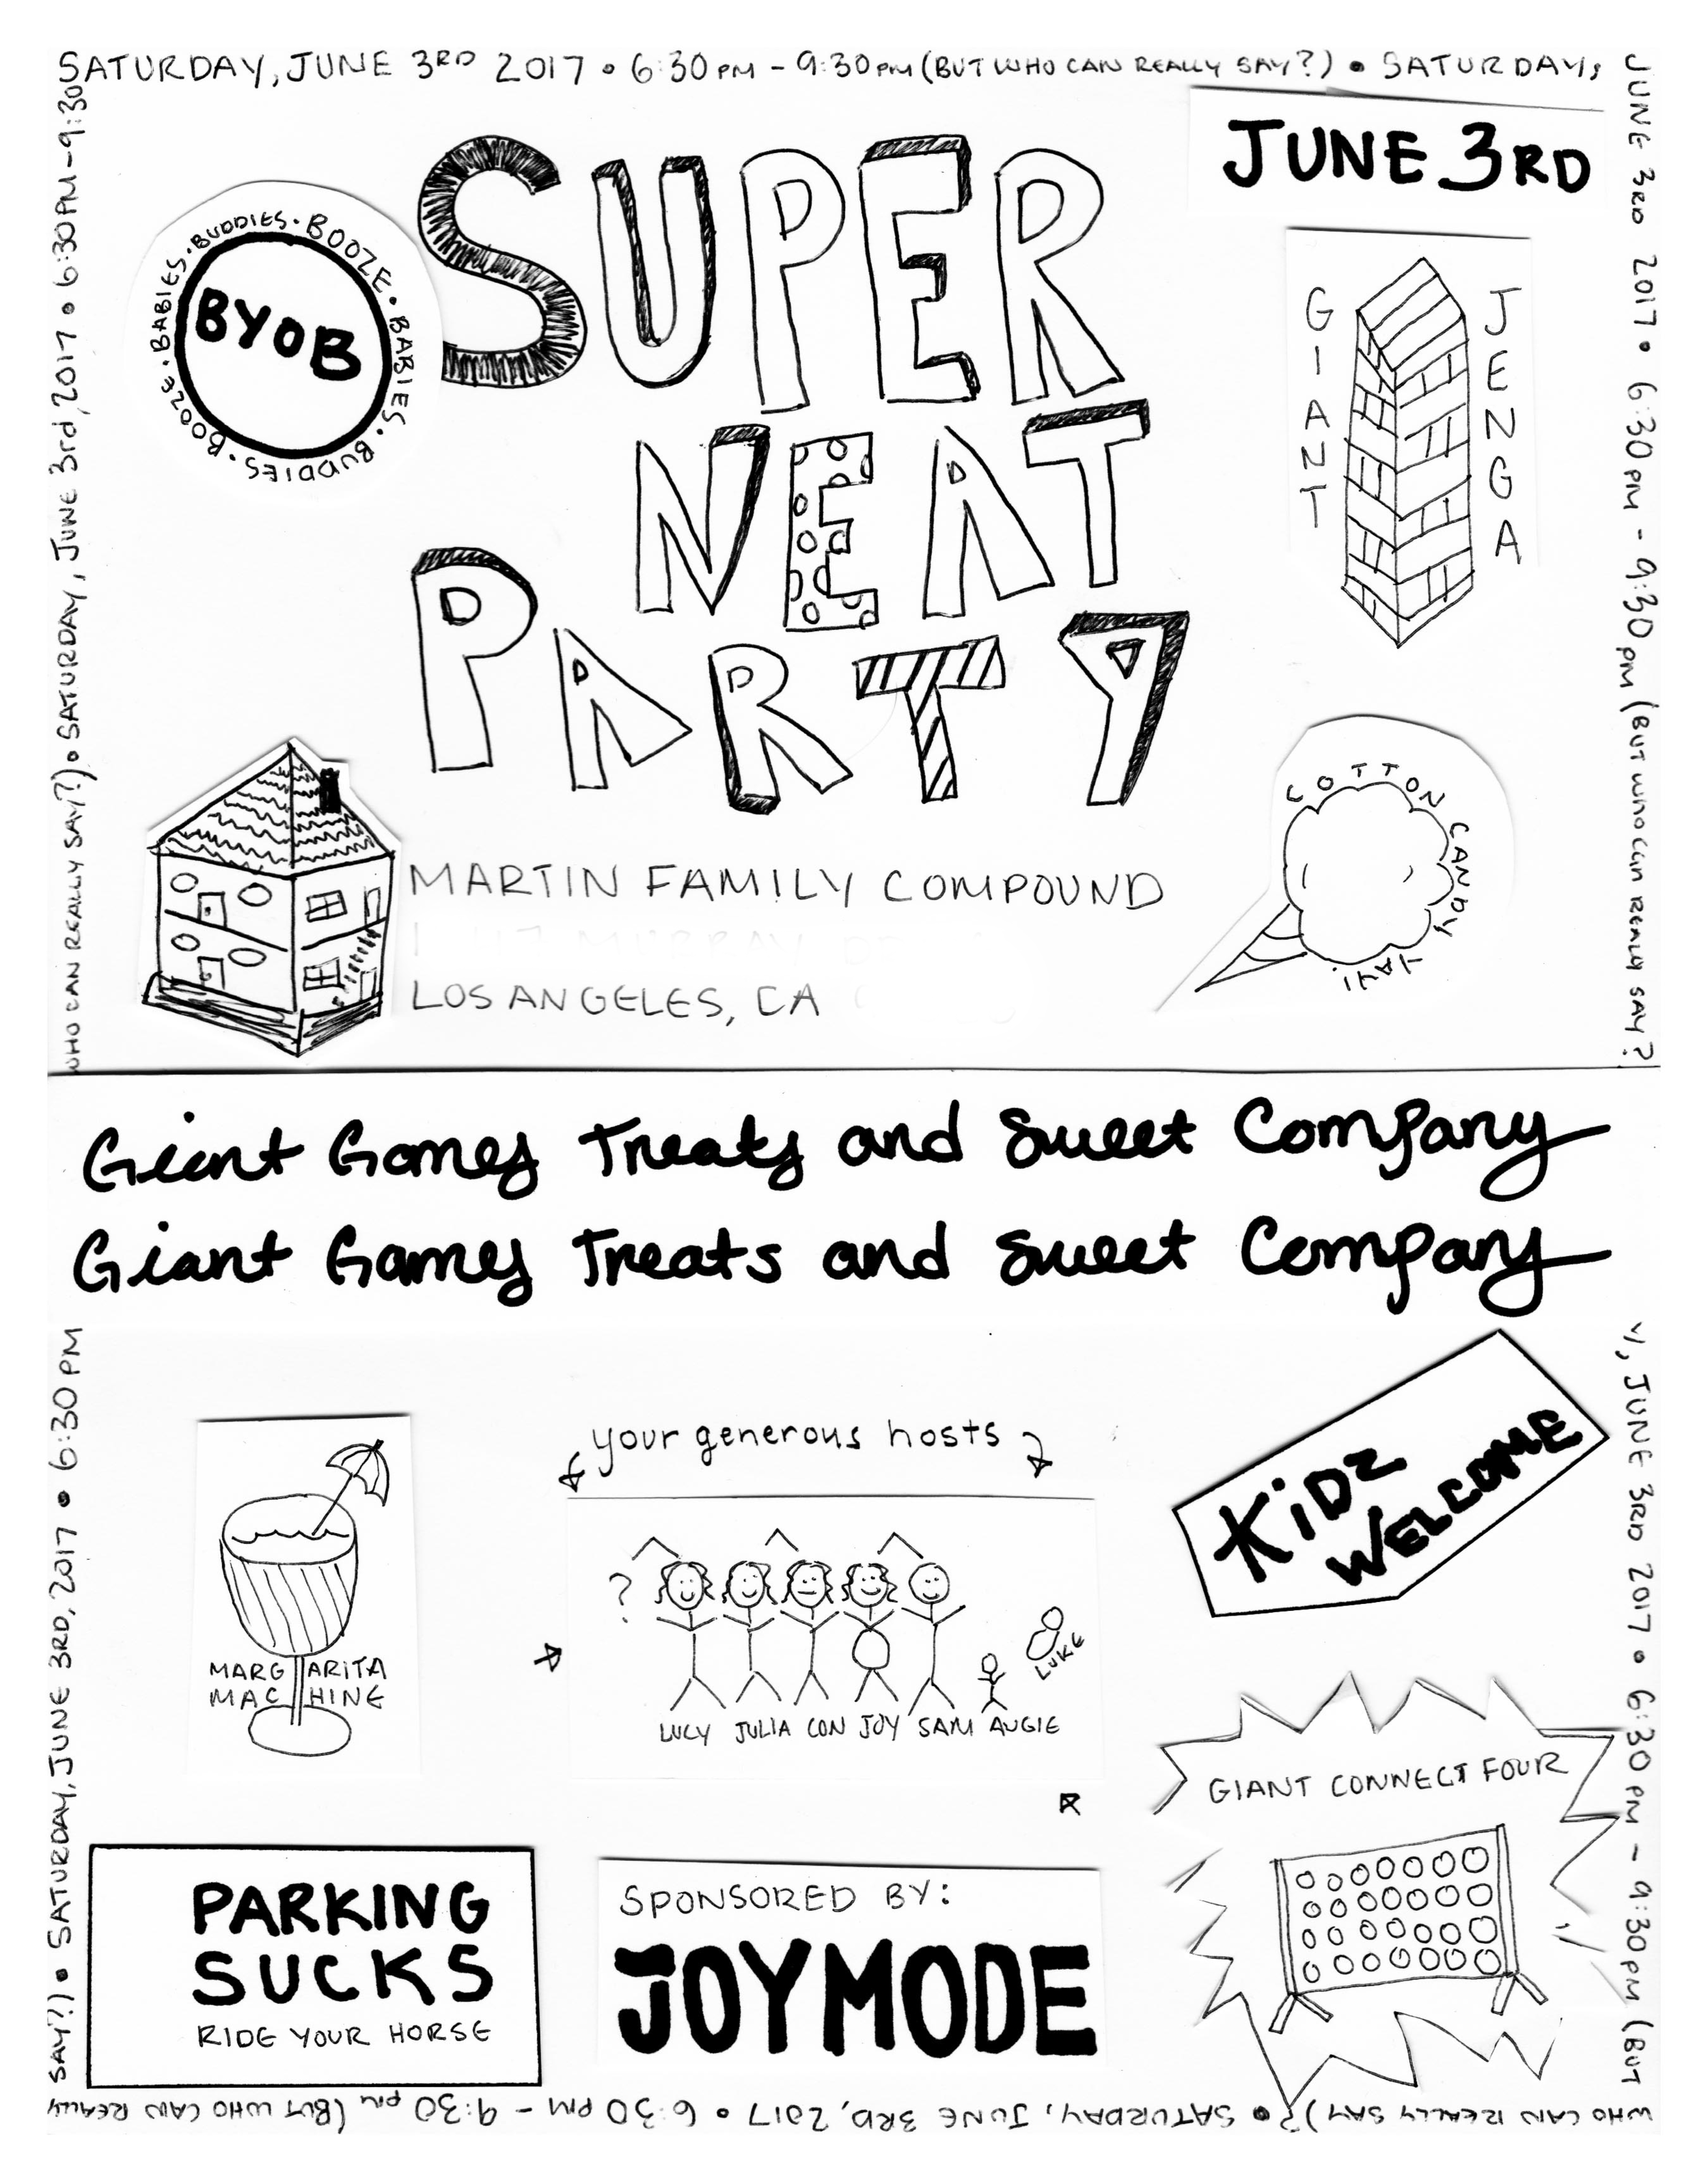 SATURDAY, JUNE 3RD 2017 • 6:30PM - 9:30PM (BUT WHO CAN REALLY SAY?) • SATURDAY,
JUNE 3RD 2017 • 6:30PM - 9:30PM (BUT WHO CAN REALLY SAY?
JUNE 3RD
SUPER
NEAT
PARTY
BYOB
BOOZE • BABIES • BUDDIES • BOOZE • BABIES • BUDDIES •
GIANT
JENGA
COTTON CANDY
YAY!
MARTIN FAMILY COMPOUND
LOS ANGELES, CA
WHO CAN REALLY SAY?) • SATURDAY, JUNE 3rd, 2017 • 6:30PM - 9:30
Giant Games Treats and Sweet Company
Giant Games Treats and Sweet Company
your generous hosts
?
LUCY JULIA CON JOY SAM AUGIE
LUKE
MARGARITA
MACHINE
KiDZ
WELCOME
GIANT CONNECT FOUR
PARKING
SUCKS
RIDE YOUR HORSE
SPONSORED BY:
JOYMODE
Y, JUNE 3RD 2017 • 6:30PM - 9:30PM (BUT
WHO CAN REALLY SAY)? • SATURDAY, JUNE 3RD, 2017 • 6:30PM - 9:30pm (BUT WHO CAN REALLY
SAY?) • SATURDAY, JUNE 3RD, 2017 • 6:30PM